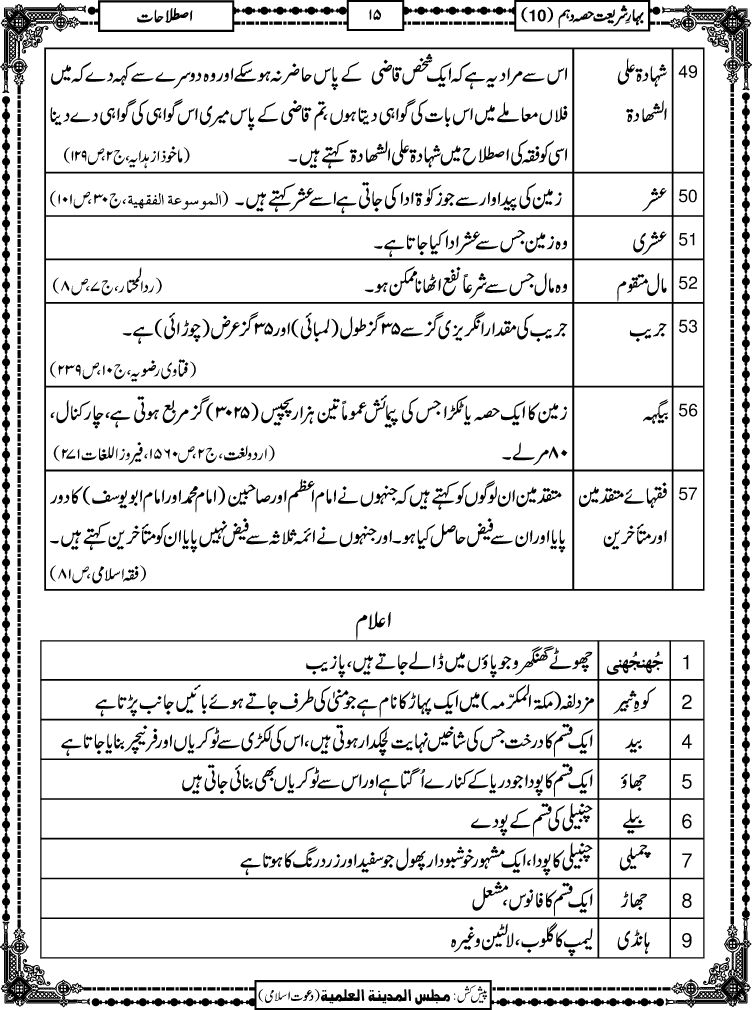 بہارِ شریعت حصہ دہم (10)
۱۵
اصطلاحات
49 شہادۃ علی اس سے مراد یہ ہے کہ ایک شخص قاضی کے پاس حاضر نہ ہو سکے اور وہ دوسرے سے کہہ دے کہ میں
الشھادۃ فلاں معاملے میں اس بات کی گواہی دیتا ہوں، تم قاضی کے پاس میری اس گواہی کی گواہی دے دینا
اسی کو فقہ کی اصطلاح میں شہادۃ علی الشھادۃ کہتے ہیں۔ (ماخوذ از ہدایہ، ج۲، ص۱۲۹)
50 عشر زمین کی پیداوار سے جو زکوٰۃ ادا کی جاتی ہے اسے عشر کہتے ہیں۔ (الموسوعة الفقهية، ج۳۰، ص۱۰۱)
51 عشری وہ زمین جس سے عشر ادا کیا جاتا ہے۔
52 مال متقوم وہ مال جس سے شرعاً نفع اٹھانا ممکن ہو۔ (ردالمحتار، ج۷، ص۸)
53 جریب جریب کی مقدار انگریزی گز سے ۳۵ گز طول (لمبائی) اور ۳۵ گز عرض (چوڑائی) ہے۔
(فتاوی رضویہ، ج۱۰، ص۲۳۹)
56 بیگہہ زمین کا ایک حصہ یا ٹکڑا جس کی پیمائش عموماً تین ہزار پچیس (۳۰۲۵) گز مربع ہوتی ہے، چار کنال،
۸۰ مرلے۔ (اردو لغت، ج۲، ص۱۵۶۰، فیروز اللغات ۲۷۱)
57 فقہائے متقدمین متقدمین ان لوگوں کو کہتے ہیں کہ جنہوں نے امام اعظم اور صاحبین (امام محمد اور امام ابو یوسف) کا دور
اور متأخرین پایا اور ان سے فیض حاصل کیا ہو۔ اور جنہوں نے ائمہ ثلاثہ سے فیض نہیں پایا ان کو متأخرین کہتے ہیں۔
(فقہ اسلامی، ص۸۱)
اعلام
1 جُھنجُھنی چھوٹے گھنگھرو جو پاؤں میں ڈالے جاتے ہیں، پازیب
2 کوہِ شبیر مزدلفہ (مکۃ المکرّمہ) میں ایک پہاڑ کا نام ہے جو منیٰ کی طرف جاتے ہوئے بائیں جانب پڑتا ہے
4 بید ایک قسم کا درخت جس کی شاخیں نہایت لچکدار ہوتی ہیں، اس کی لکڑی سے ٹوکریاں اور فرنیچر بنایا جاتا ہے
5 جھاؤ ایک قسم کا پودا جو دریا کے کنارے اُگتا ہے اور اس سے ٹوکریاں بھی بنائی جاتی ہیں
6 بیلے چنبیلی کی قسم کے پودے
7 چمیلی چنبیلی کا پودا، ایک مشہور خوشبودار پھول جو سفید اور زرد رنگ کا ہوتا ہے
8 جھاڑ ایک قسم کا فانوس، مشعل
9 ہانڈی لیمپ کا گلوب، لالٹین وغیرہ
پیش کش: مجلس المدینۃ العلمیۃ (دعوت اسلامی)